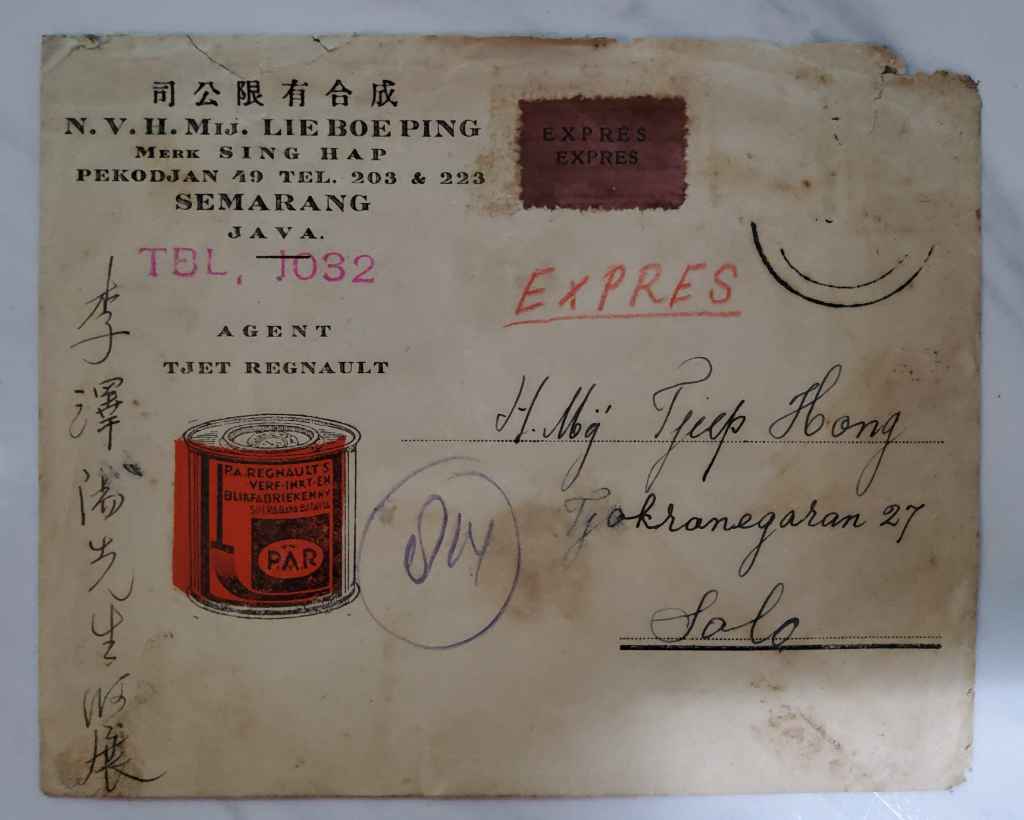 成合有限公司
N.V.H. MIJ. LIE BOE PING
MERK SING HAP
PEKODJAN 49 TEL. 203 & 223
SEMARANG
JAVA.
TBL, 1032
AGENT
TJET REGNAULT
P.A. REGNAULT'S
VERF-INKT-EN
BLIKFABRIEKEN NV
BATAVIA
PÄR
李澤先生展
EXPRÈS
EXPRES
EXPRES
H. Mÿ Tjiep Hong
Tjokranegaran 27
Solo